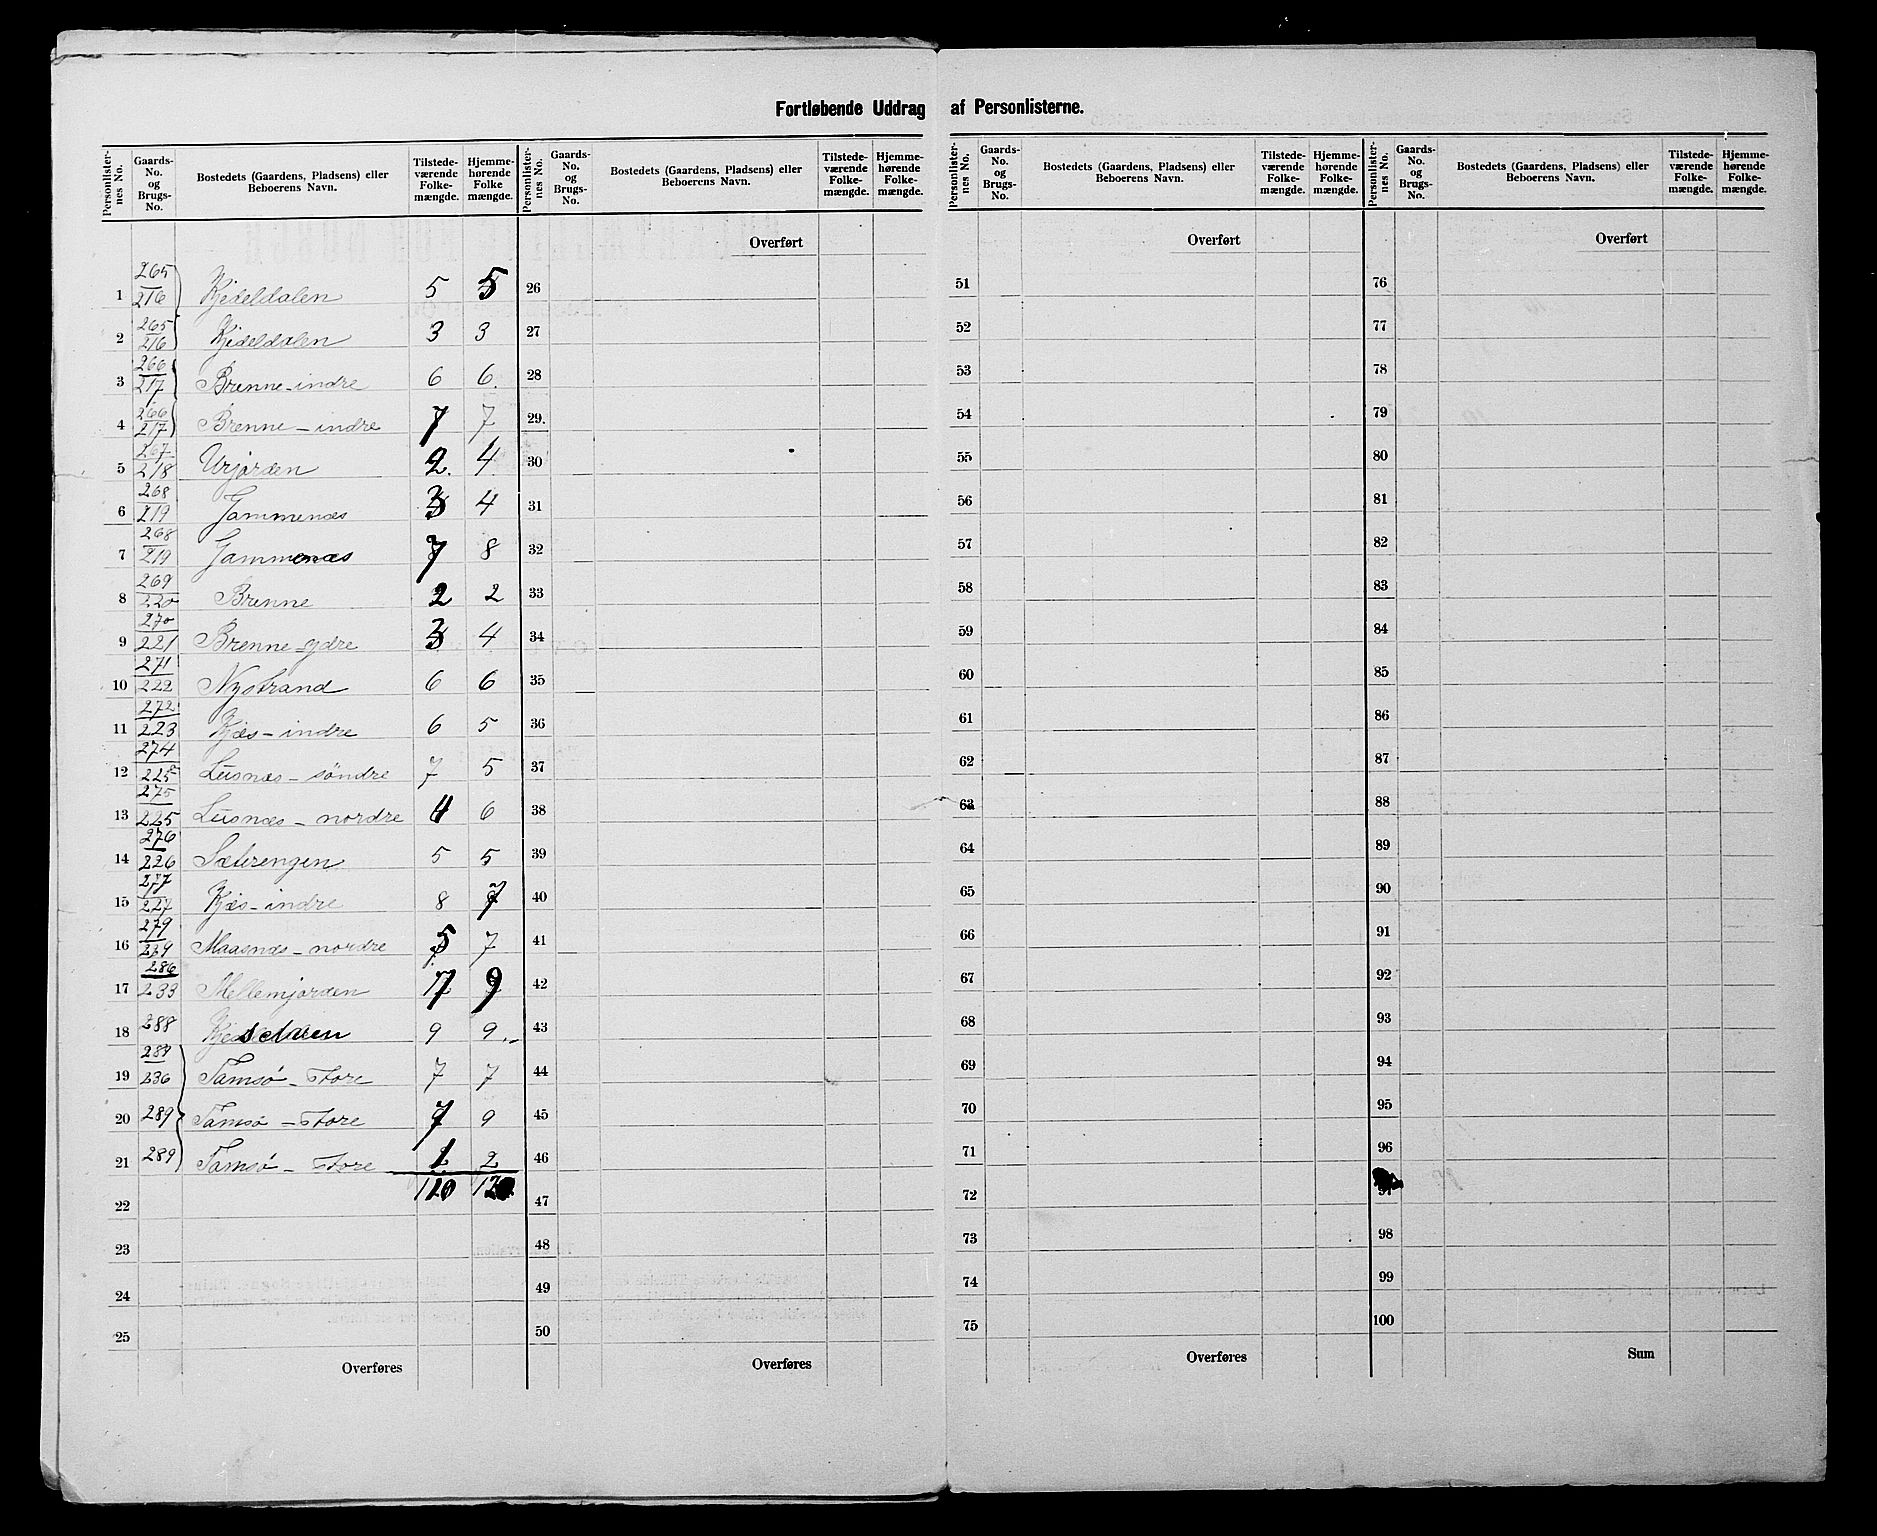 Fortløbende Uddrag af Personlisterne.
Personlisternes No. Gaards-No. og Brugs-No. Bostedets (Gaardens, Pladsens) eller Beboerens Navn. Tilstedeværende Folkemængde. Hjemmehørende Folkemængde.
Personlisternes No. Gaards-No. og Brugs-No. Bostedets (Gaardens, Pladsens) eller Beboerens Navn. Tilstedeværende Folkemængde. Hjemmehørende Folkemængde.
Personlisternes No. Gaards-No. og Brugs-No. Bostedets (Gaardens, Pladsens) eller Beboerens Navn. Tilstedeværende Folkemængde. Hjemmehørende Folkemængde.
Personlisternes No. Gaards-No. og Brugs-No. Bostedets (Gaardens, Pladsens) eller Beboerens Navn. Tilstedeværende Folkemængde. Hjemmehørende Folkemængde.
Overført Overført Overført
1 265/216 Kjedeldalen 5 5 26 51 76
2 265/216 Kjedeldalen 3 3 27 52 77
3 266/217 Brenne-indre 6 6. 28 53 78
4 266/217 Brenne-indre 7 7 29. 54 79
5 267/218 Urjorden 2. 4. 30 55 80
6 268/219 Jammenæs 3 4 31 56 81
7 268/219 Jammenæs 7 8 32 57 82
8 269/220 Brenne 2 2 33 58 83
9 270/221 Brenne ydre 3 4 34 59 84
10 271/222 Nystrand 6 6 35 60 85
11 272/223 Kjæs-indre 6 5 36 61 86
12 274/225 Lusnæs-søndre 7 5 37 62 87
13 275/225 Lusnæs-nordre 4 6 38 63 88
14 276/226 Sæterengen 5 5 39 64 89
15 277/227 Kjæs-indre 8 7 40 65 90
16 279/229 Maasnæs-nordre 5 7 41 66 91
17 286/233 Mellemjorden 17 9 42 67 92
18 288 9 9 43 68 93
19 289/236 Tamsø-Store 7 7 44 69 94
20 289 Tamsø-Store 7 9 45 70 95
21 289 Tamsø-Store 1 2 46 71 96
22 110 47 72 97
23 48 73 98
24 49 74 99
25 50 75 100
Overføres Overføres Overføres Sum